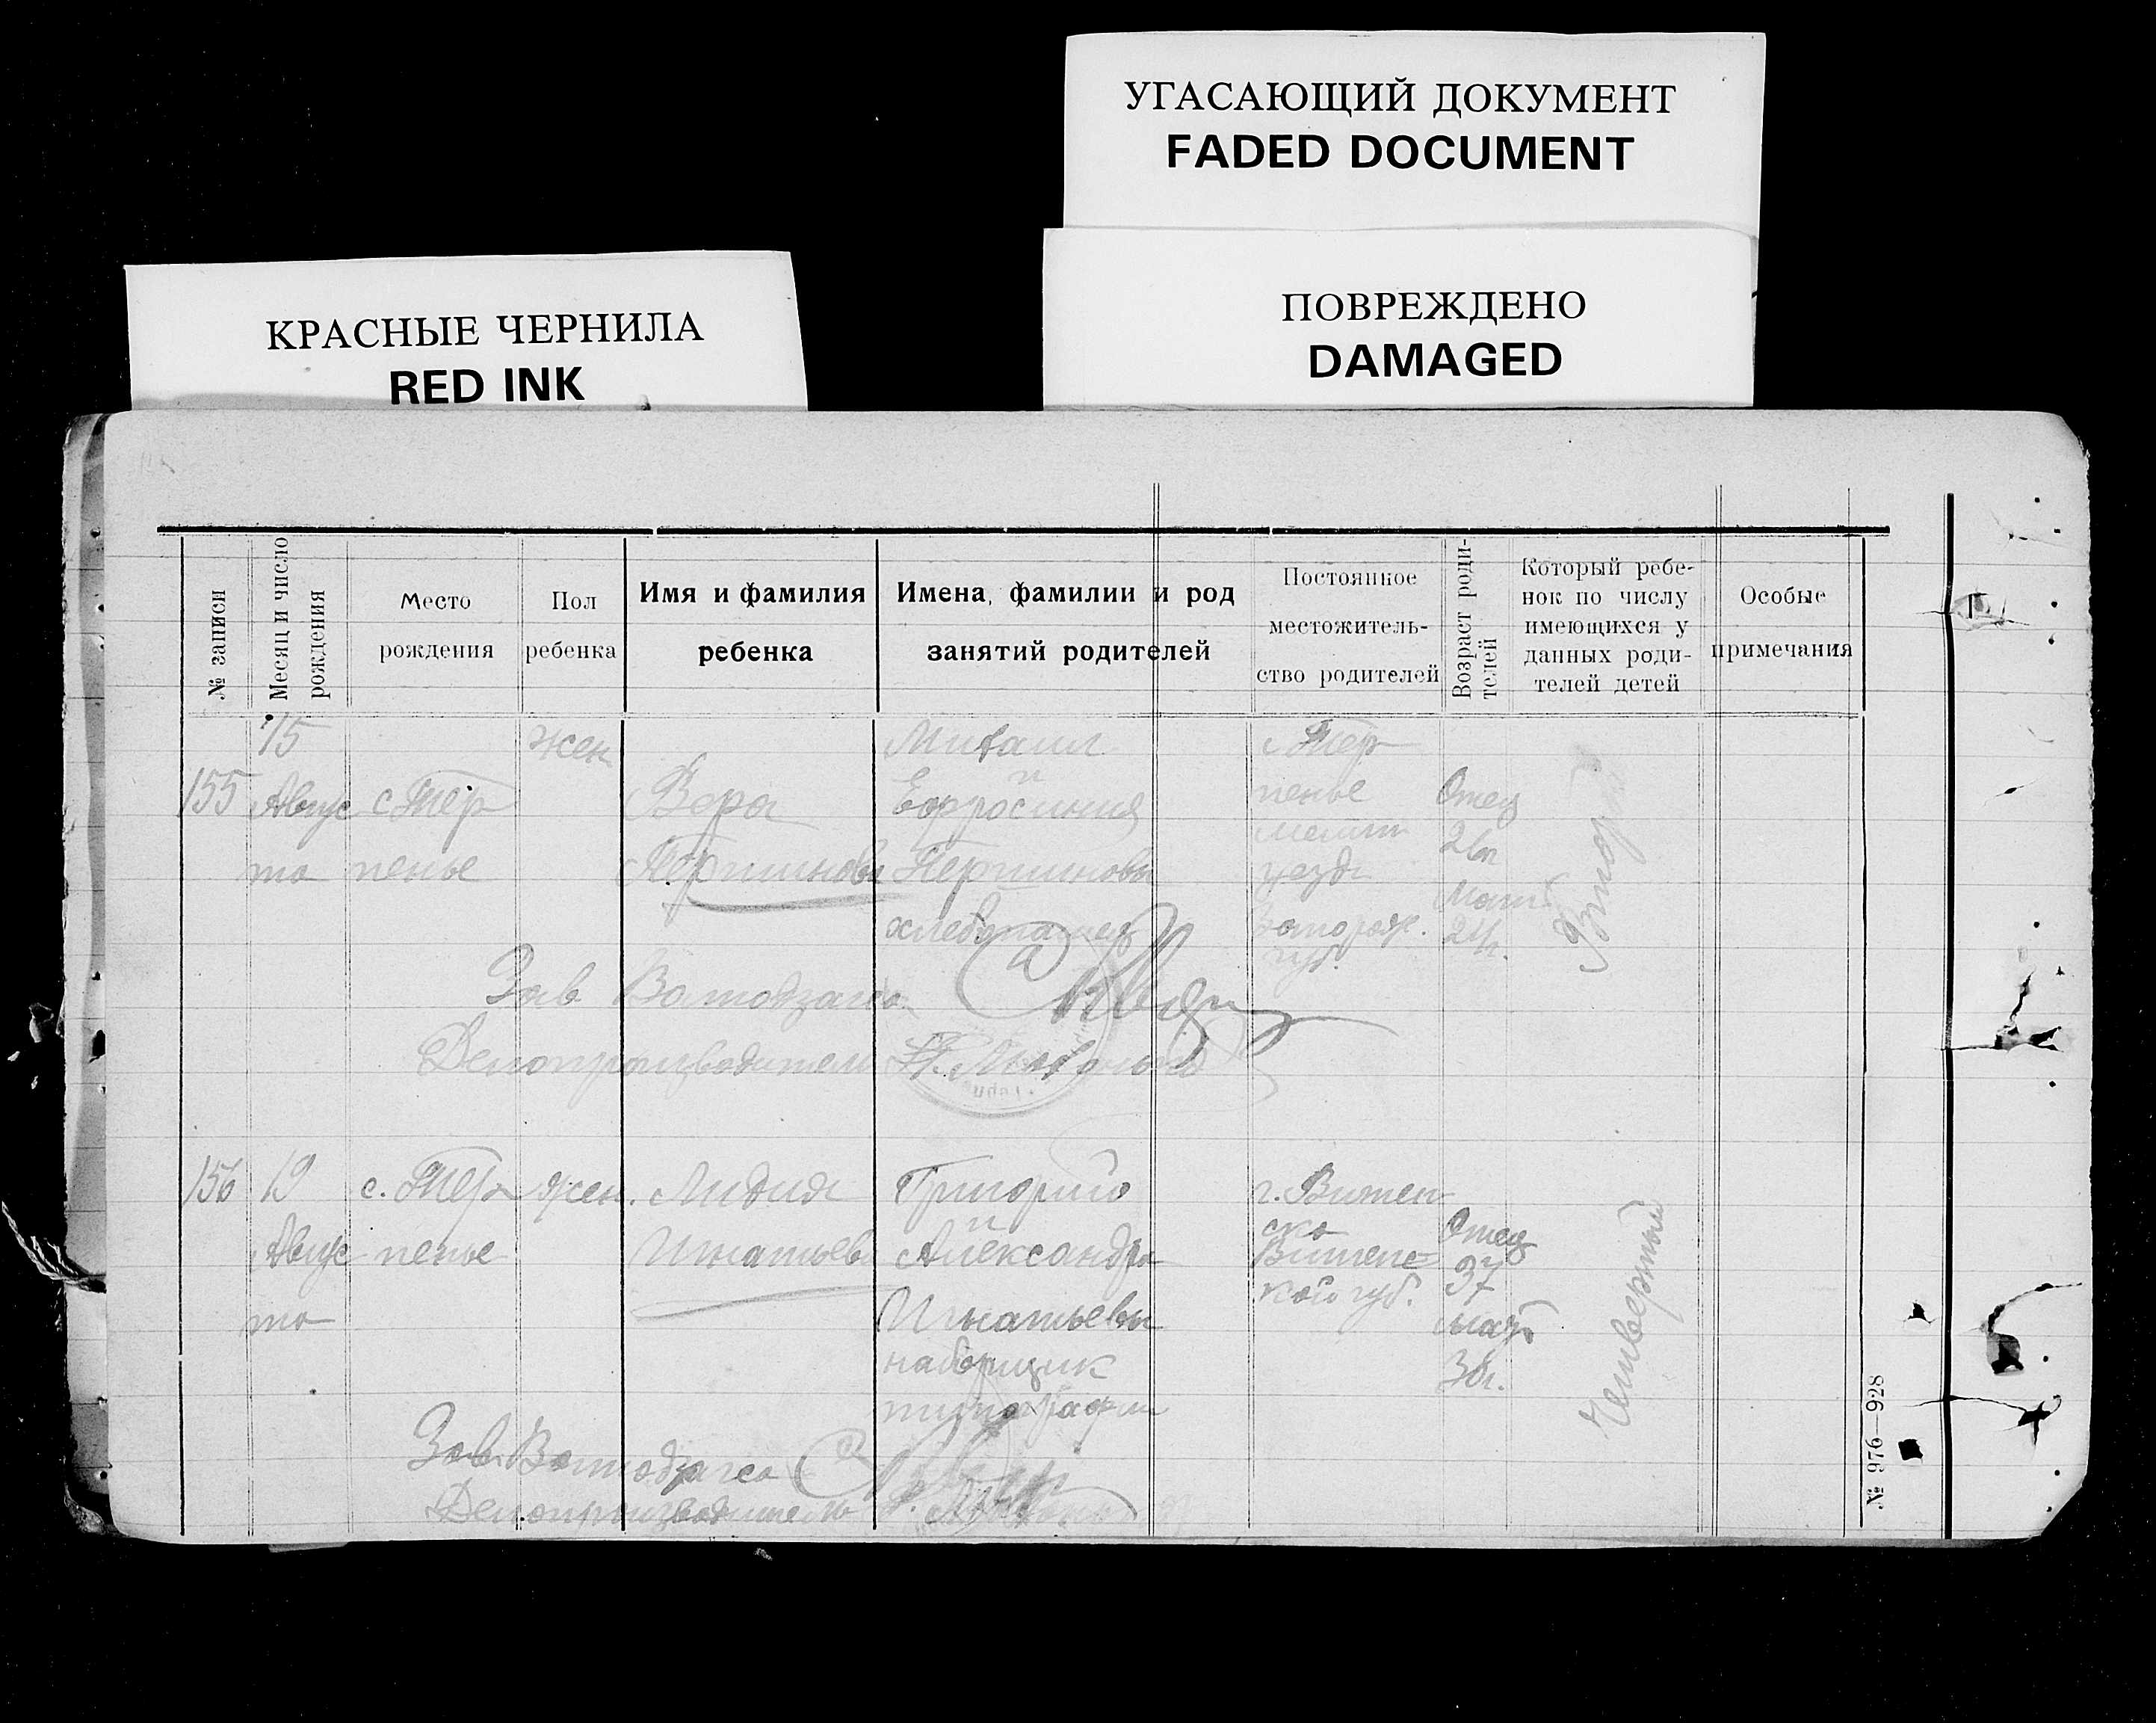 УГАСАЮЩИЙ ДОКУМЕНТ
FADED DOCUMENT
ПОВРЕЖДЕНО
DAMAGED
КРАСНЫЕ ЧЕРНИЛА
RED INK
№ записи
Месяц и число рождения
Место рождения
Пол ребенка
Имя и фамилия ребенка
Имена, фамилии и род занятий родителей
Постоянное местожитель-
ство родителей
Возраст роди-
телей
Который ребе-
нок по числу
имеющихся у
данных роди-
телей детей
Особые примечания
155
15
Авгус
та
с Тер
пенье
жен
Вера
Першинова
Михаил
и
Ефросиния
Першиновы
хлебопашец
с Тер
пенье
Мелит
уезда
Запорож.
губ.
Отец
26л
Мать
24г.
Второй
Зав Волподзагса
Делопроизводитель
156
19
Авгус
та
с. Тер
пенье
жен.
Лидия
Игнатьева
Григорий
и
Александра
Игнатьевы
наборщик
типографии
г. Витеп
ска
Витепс=
кой губ.
Отец
37
мать
36г.
Четвертый
Зав. Волподзагса
Делопроизводитель
№ 976—928